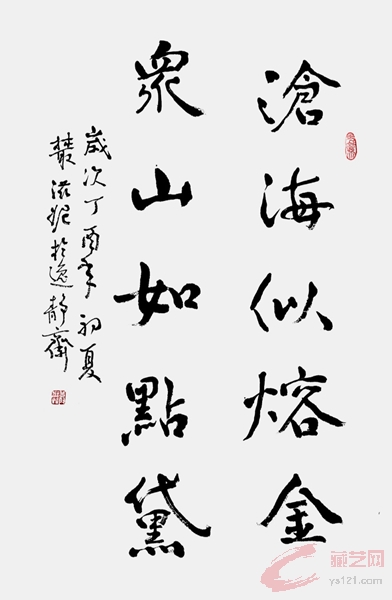 滄海似熔金
眾山如點黛
歲次丁酉年初夏
叢滋妮於逸靜齋
藏艺网
ys121.com